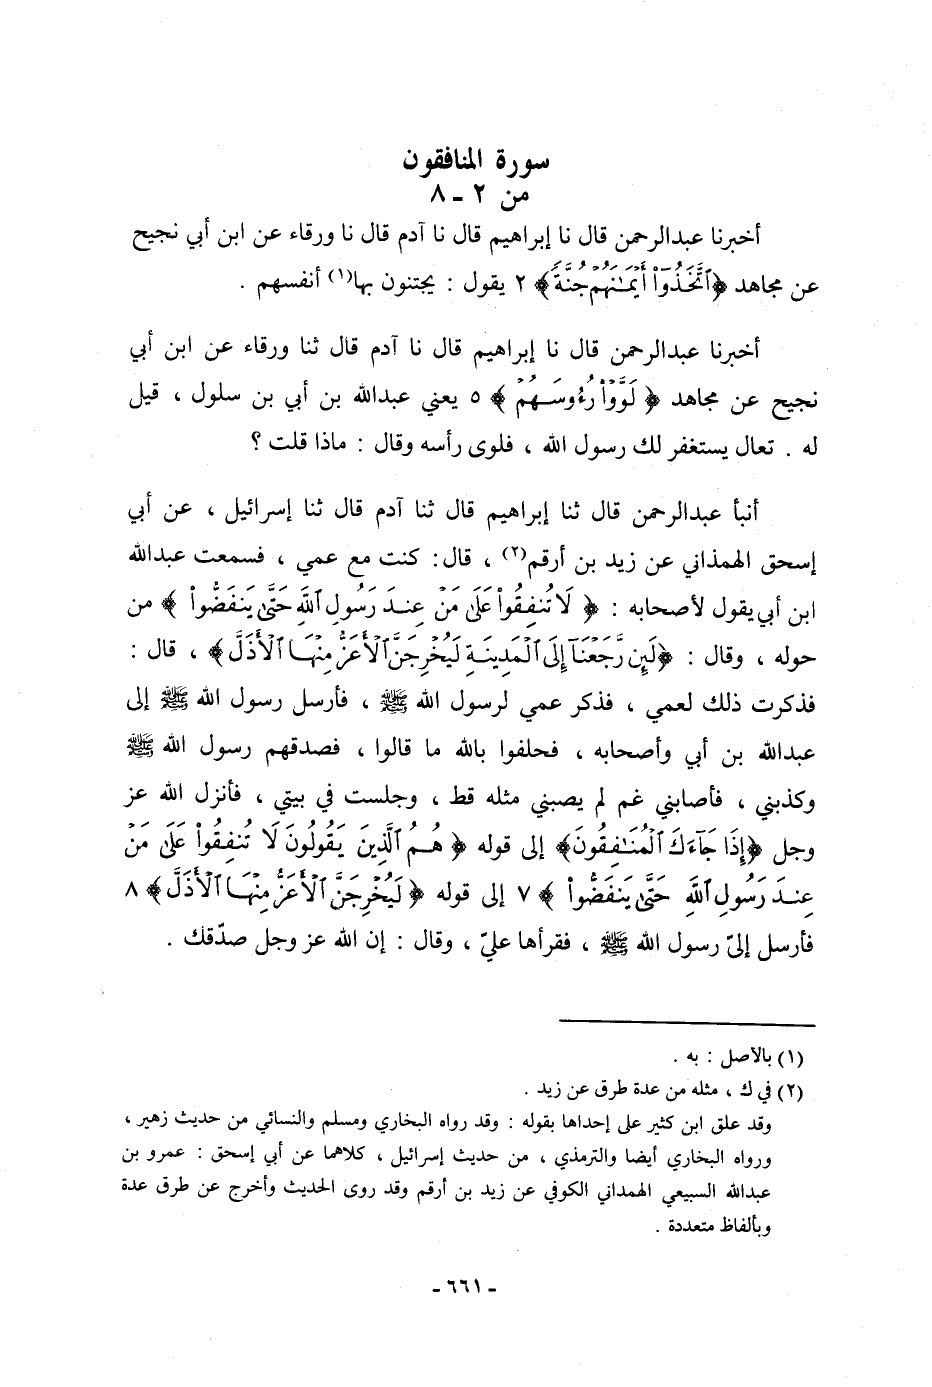 سورة المنافقون
من ٢ - ٨
أخبرنا عبدالرحمن قال نا إبراهيم قال نا آدم قال نا ورقاء عن ابن أبي نجيح
عن مجاهد ﴿ٱتَّخَذُوٓا۟ أَيْمَـٰنَهُمْ جُنَّةً﴾ ٢ يقول : يجتنون بها(١) أنفسهم .
أخبرنا عبدالرحمن قال نا إبراهيم قال نا آدم قال ثنا ورقاء عن ابن أبي
نجيح عن مجاهد ﴿ لَوَّوْا۟ رُءُوسَهُمْ ﴾ ٥ يعني عبدالله بن أبي بن سلول ، قيل
له . تعال يستغفر لك رسول الله ، فلوى رأسه وقال : ماذا قلت ؟
أنبأ عبدالرحمن قال ثنا إبراهيم قال ثنا آدم قال ثنا إسرائيل ، عن أبي
إسحق الهمذاني عن زيد بن أرقم(٢) ، قال: كنت مع عمي ، فسمعت عبدالله
ابن أبي يقول لأصحابه : ﴿ لَا تُنفِقُوا۟ عَلَىٰ مَنْ عِندَ رَسُولِ ٱللَّهِ حَتَّىٰ يَنفَضُّوا۟ ﴾ من
حوله ، وقال : ﴿لَئِن رَّجَعْنَآ إِلَى ٱلْمَدِينَةِ لَيُخْرِجَنَّ ٱلْأَعَزُّ مِنْهَا ٱلْأَذَلَّ﴾ ، قال :
فذكرت ذلك لعمي ، فذكر عمي لرسول الله ﷺ ، فأرسل رسول الله ﷺ إلى
عبدالله بن أبي وأصحابه ، فحلفوا بالله ما قالوا ، فصدقهم رسول الله ﷺ
وكذبني ، فأصابني غم لم يصبني مثله قط ، وجلست في بيتي ، فأنزل الله عز
وجل ﴿إِذَا جَآءَكَ ٱلْمُنَـٰفِقُونَ﴾ إلى قوله ﴿ هُمُ ٱلَّذِينَ يَقُولُونَ لَا تُنفِقُوا۟ عَلَىٰ مَنْ
عِندَ رَسُولِ ٱللَّهِ حَتَّىٰ يَنفَضُّوا۟ ﴾ ٧ إلى قوله ﴿ لَيُخْرِجَنَّ ٱلْأَعَزُّ مِنْهَا ٱلْأَذَلَّ﴾ ٨
فأرسل إليّ رسول الله ﷺ ، فقرأها عليّ ، وقال : إن الله عز وجل صدّقك .
(١) بالأصل : به .
(٢) في ك ، مثله من عدة طرق عن زيد .
وقد علق ابن كثير على إحداها بقوله : وقد رواه البخاري ومسلم والنسائي من حديث زهير ،
ورواه البخاري أيضا والترمذي ، من حديث إسرائيل ، كلاهما عن أبي إسحق : عمرو بن
عبدالله السبيعي الهمداني الكوفي عن زيد بن أرقم وقد روى الحديث وأخرج عن طرق عدة
وبألفاظ متعددة .
- ٦٦١ -